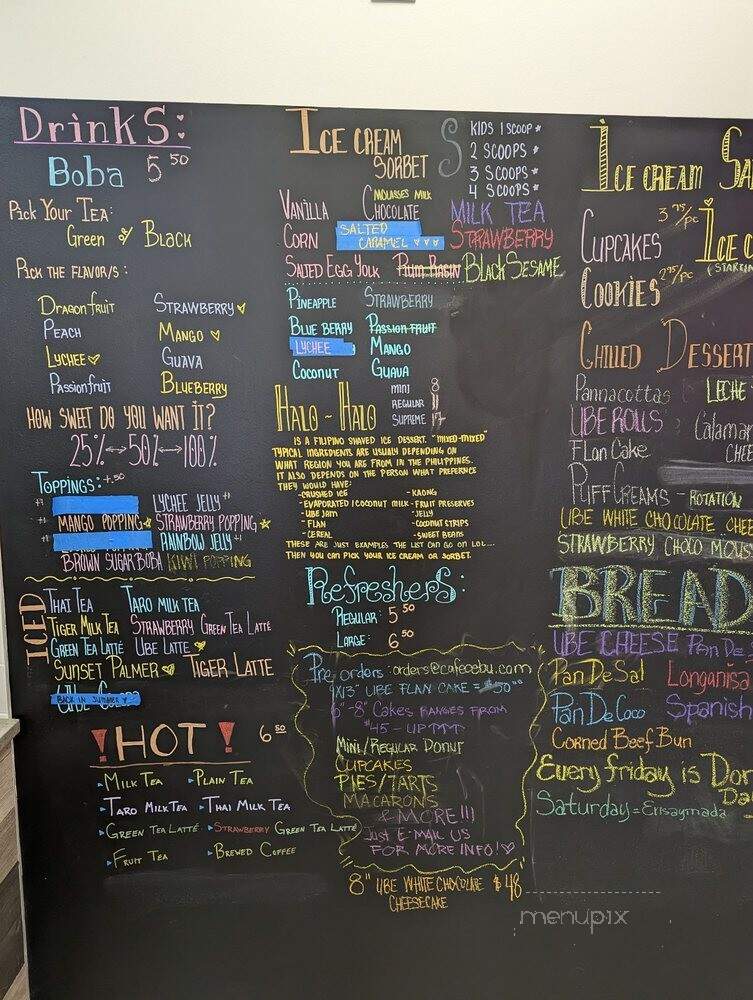 Drinks:
Boba 5 50
Pick Your Tea:
Green or Black
Pick the Flavor/s:
Dragonfruit Strawberry
Peach Mango
Lychee Guava
Passionfruit Blueberry
How sweet do you want it?
25% 50% 100%
Toppings: +.50
Lychee Jelly
Mango Popping Strawberry Popping
Rainbow Jelly
Brown Sugar Boba Kiwi Popping
ICED
Thai Tea Taro Milk Tea
Tiger Milk Tea Strawberry Green Tea Latte
Green Tea Latte Ube Latte
Sunset Palmer Tiger Latte
Back in Summer
!HOT! 6 50
Milk Tea Plain Tea
Taro Milk Tea Thai Milk Tea
Green Tea Latte Strawberry Green Tea Latte
Fruit Tea Brewed Coffee
Ice Cream
Sorbet
Kids 1 Scoop
2 Scoops
3 Scoops
4 Scoops
Vanilla Chocolate Milk Tea
Corn Salted Caramel Strawberry
Salted Egg Yolk Rum Rasin Black Sesame
Pineapple Strawberry
Blue Berry Passion Fruit
Lychee Mango
Coconut Guava
Halo-Halo
mini 8
Regular 11
Supreme 17
is a Filipino shaved ice dessert. "mixed-mixed"
Typical ingredients are usually depending on
what region you are from in the Philippines.
It also depends on the person what prefernce
they would have:
-Crushed ice -Kaong
-Evaporated/coconut milk -Fruit preserves
-Ube jam -Jelly
-Flan -Coconut strips
-Cereal -Sweet beans
These are just examples the list can go on LOL...
Then you can pick your ice cream or sorbet.
Refreshers:
Regular: 5 50
Large: 6 50
Pre-orders: orders@cafecebu.com
9x13" Ube Flan Cake = $50
6"-8" Cakes ranges from
$45 - up
Mini/Regular Donut
Cupcakes
Pies/Tarts
Macarons
& More!!!
Just E-mail us
for more info!
8" Ube White Chocolate $48
Cheesecake
Ice Cream Sa
Cupcakes 3 75/pc Ice C
Cookies 2 95/pc
Chilled Dessert
Pannacottas Leche
Ube Rolls Calamar
Flan Cake Chee
Puff Creams - Rotation
Ube White Chocolate Chee
Strawberry Choco Mous
BREAD
Ube Cheese Pan De S
Pan De Sal Longanisa
Pan De Coco Spanish
Corned Beef Bun
Every friday is Don
Day
Saturday = Ensaymada
menupix